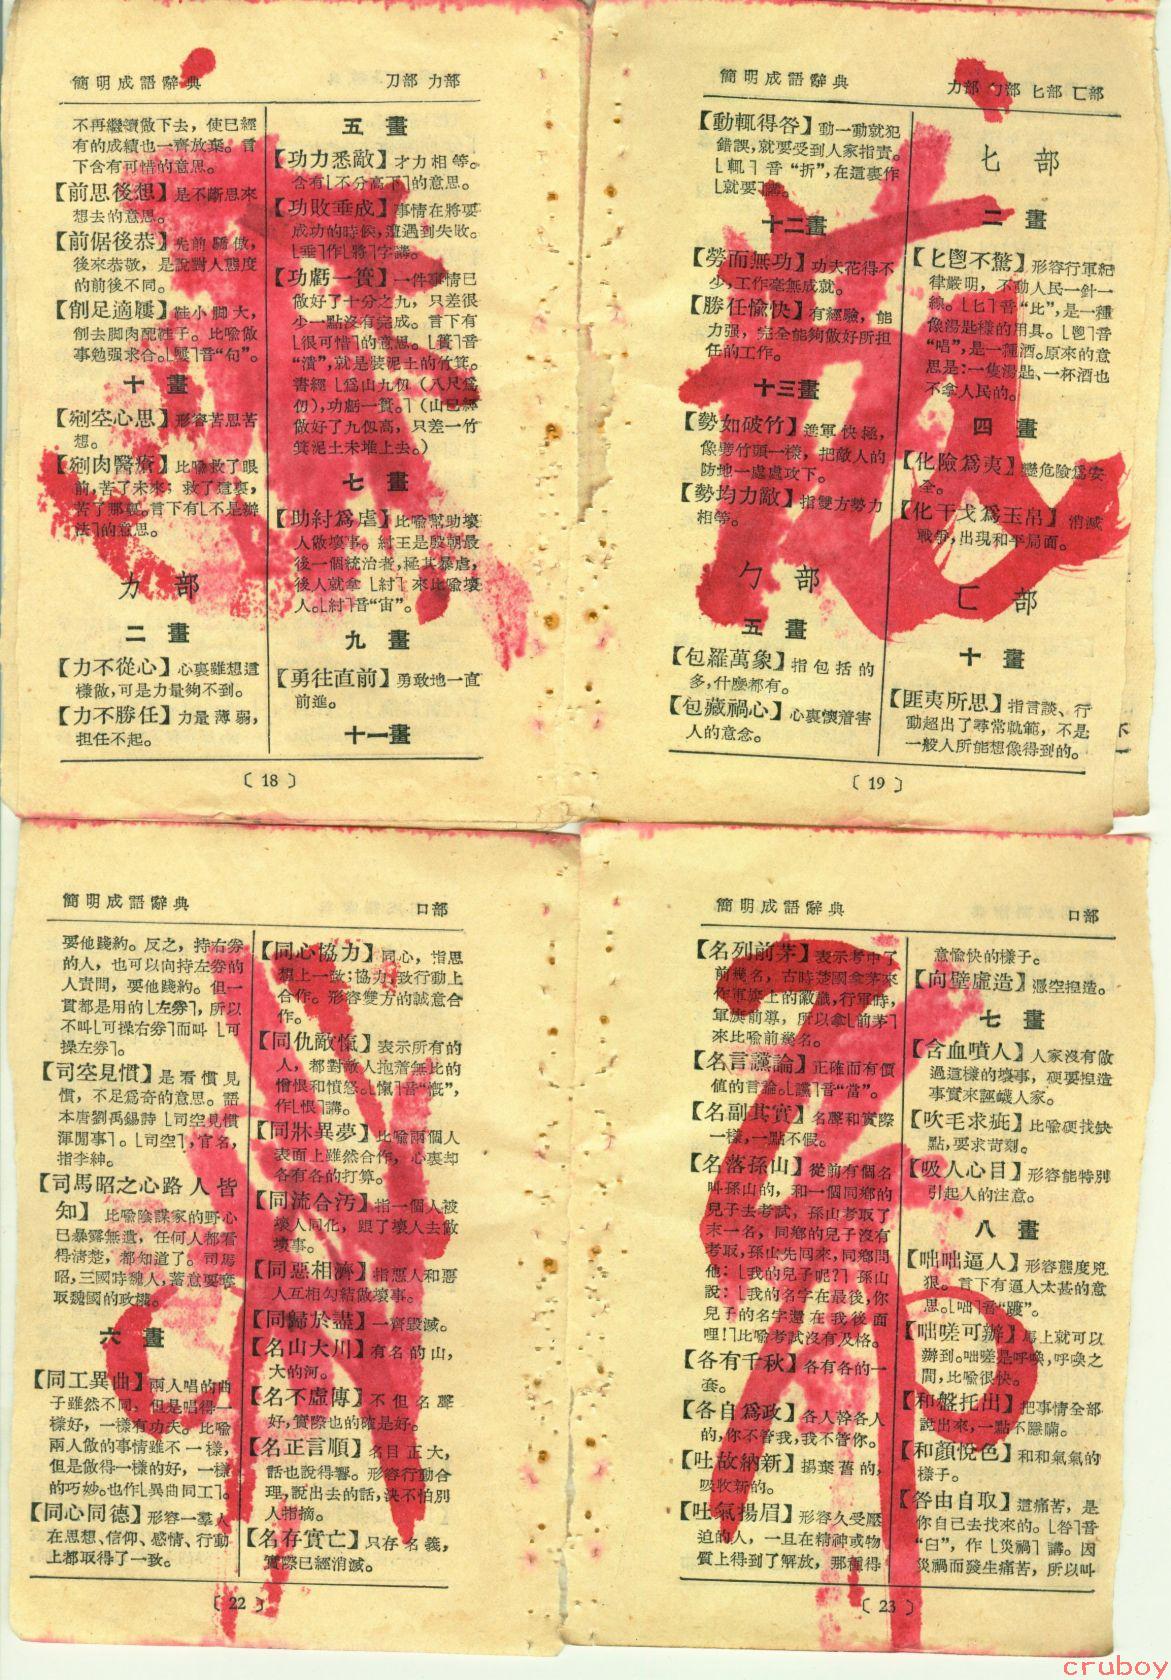 簡明成語辭典
刀部 力部
不再繼續做下去，使已經
有的成績也一齊放棄。言
下含有可惜的意思。
【前思後想】是不斷思來
想去的意思。
【前倨後恭】先前驕傲，
後來恭敬，是說對人態度
的前後不同。
【削足適屨】鞋小脚大，
削去脚肉配鞋子。比喻做
事勉强求合。〔屨〕音“句”。
十畫
【剜空心思】形容苦思苦
想。
【剜肉醫瘡】比喻救了眼
前，苦了未來；救了這裏，
苦了那裏。言下有〔不是辦
法〕的意思。
力部
二畫
【力不從心】心裏雖想這
樣做，可是力量夠不到。
【力不勝任】力量薄弱，
担任不起。
五畫
【功力悉敵】才力相等。
含有〔不分高下〕的意思。
【功敗垂成】事情在將要
成功的時候，遭遇到失敗。
〔垂〕作〔將〕字講。
【功虧一簣】一件事情已
做好了十分之九，只差很
少一點沒有完成。言下有
〔很可惜〕的意思。〔簣〕音
“潰”，就是裝泥土的竹箕。
書經〔爲山九仞（八尺爲
仞），功虧一簣。〕（山已經
做好了九仞高，只差一竹
箕泥土未堆上去。）
七畫
【助紂爲虐】比喻幫助壞
人做壞事。紂王是殷朝最
後一個統治者，極其暴虐，
後人就拿〔紂〕來比喻壞
人。〔紂〕音“宙”。
九畫
【勇往直前】勇敢地一直
前進。
十一畫
〔18〕
簡明成語辭典
力部 勹部 匕部 匚部
【動輒得咎】動一動就犯
錯誤，就要受到人家指責。
〔輒〕音“折”，在這裏作
〔就要〕講。
十二畫
【勞而無功】功夫花得不
少，工作毫無成就。
【勝任愉快】有經驗，能
力强，完全能夠做好所担
任的工作。
十三畫
【勢如破竹】進軍快極，
像劈竹頭一樣，把敵人的
防地一處處攻下。
【勢均力敵】指雙方勢力
相等。
勹部
五畫
【包羅萬象】指包括的
多，什麼都有。
【包藏禍心】心裏懷着害
人的意念。
匕部
二畫
【匕鬯不驚】形容行軍紀
律嚴明，不動人民一針一
線。〔匕〕音“比”，是一種
像湯匙樣的用具。〔鬯〕音
“唱”，是一種酒。原來的意
思是：一隻湯匙、一杯酒也
不拿人民的。
四畫
【化險爲夷】變危險爲安
全。
【化干戈爲玉帛】消滅
戰爭，出現和平局面。
匚部
十畫
【匪夷所思】指言談、行
動超出了尋常軌範，不是
一般人所能想像得到的。
〔19〕
簡明成語辭典
口部
要他踐約。反之，持右劵
的人，也可以向持左劵的
人責問，要他踐約。但一
貫都是用的〔左劵〕，所以
不叫〔可操右劵〕而叫〔可
操左劵〕。
【司空見慣】是看慣見
慣，不足爲奇的意思。語
本唐劉禹錫詩〔司空見慣
渾閒事〕。〔司空〕，官名，
指李紳。
【司馬昭之心路人皆
知】比喻陰謀家的野心
已暴露無遺，任何人都看
得清楚，都知道了。司馬
昭，三國時魏人，蓄意要奪
取魏國的政權。
六畫
【同工異曲】兩人唱的曲
子雖然不同，但是唱得一
樣好，一樣有功夫。比喻
兩人做的事情雖不一樣，
但是做得一樣的好，一樣
的巧妙。也作〔異曲同工〕。
【同心同德】形容一羣人
在思想、信仰、感情、行動
上都取得了一致。
【同心協力】同心，指思
想上一致；協力，致行動上
合作。形容雙方的誠意合
作。
【同仇敵愾】表示所有的
人，都對敵人抱着無比的
憎恨和憤怒。〔愾〕音“慨”，
作〔恨〕講。
【同牀異夢】比喻兩個人
表面上雖然合作，心裏却
各有各的打算。
【同流合污】指一個人被
壞人同化，跟了壞人去做
壞事。
【同惡相濟】指惡人和惡
人互相勾結做壞事。
【同歸於盡】一齊毀滅。
【名山大川】有名的山，
大的河。
【名不虛傳】不但名聲
好，實際也的確是好。
【名正言順】名目正大，
話也說得響。形容行動合
理，說出去的話，決不怕別
人指摘。
【名存實亡】只存名義，
實際已經消滅。
〔22〕
簡明成語辭典
口部
【名列前茅】表示考中了
前幾名，古時楚國拿茅來
作軍旗上的徽識，行軍時，
軍旗前導，所以拿〔前茅〕
來比喻前幾名。
【名言讜論】正確而有價
值的言論。〔讜〕音“當”。
【名副其實】名聲和實際
一樣，一點不假。
【名落孫山】從前有個名
叫孫山的，和一個同鄉的
兒子去考試，孫山考取了
末一名，同鄉的兒子沒有
考取，孫山先回來，同鄉問
他：〔我的兒子呢？〕孫山
說：〔我的名字在最後，你
兒子的名字還在我後面
哩！〕比喻考試沒有及格。
【各有千秋】各有各的一
套。
【各自爲政】各人幹各人
的，你不管我，我不管你。
【吐故納新】揚棄舊的，
吸收新的。
【吐氣揚眉】形容久受壓
迫的人，一旦在精神或物
質上得到了解放，那種得
意愉快的樣子。
【向壁虛造】憑空揑造。
七畫
【含血噴人】人家沒有做
過這樣的壞事，硬要揑造
事實來誣衊人家。
【吹毛求疵】比喻硬找缺
點，要求苛刻。
【吸人心目】形容能特別
引起人的注意。
八畫
【咄咄逼人】形容態度兇
狠。言下有逼人太甚的意
思。〔咄〕音“踱”。
【咄嗟可辦】馬上就可以
辦到。咄嗟是呼喚，呼喚之
間，比喻很快。
【和盤托出】把事情全部
說出來，一點不隱瞞。
【和顏悅色】和和氣氣的
樣子。
【咎由自取】這痛苦，是
你自己去找來的。〔咎〕音
“臼”，作〔災禍〕講。因
災禍而發生痛苦，所以叫
〔23〕
cruboy